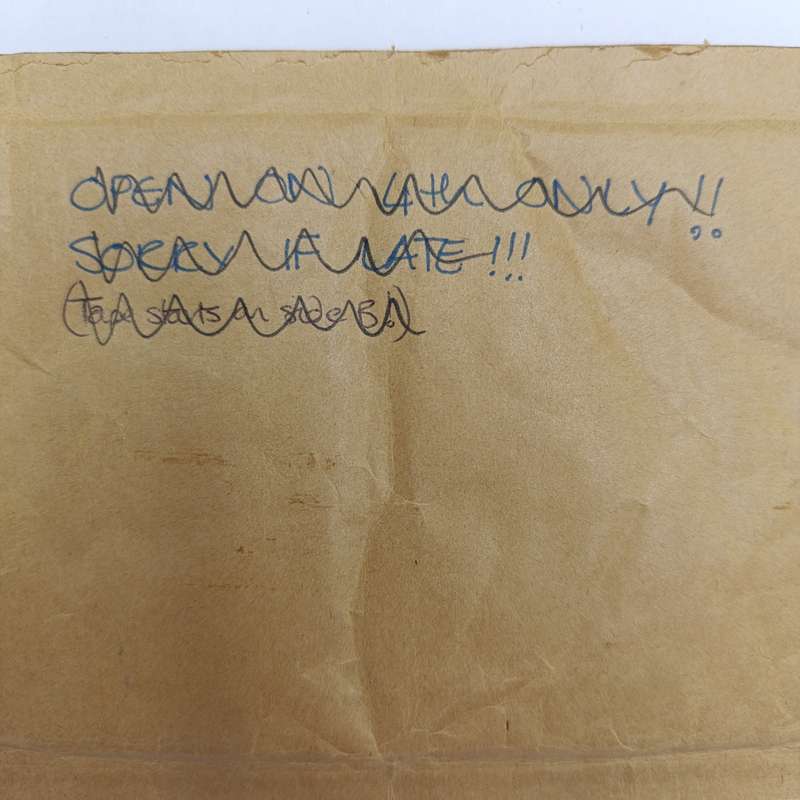 OPEN ON 4th ONLY!!
SORRY IF LATE!!!
(Tape starts on side B!)